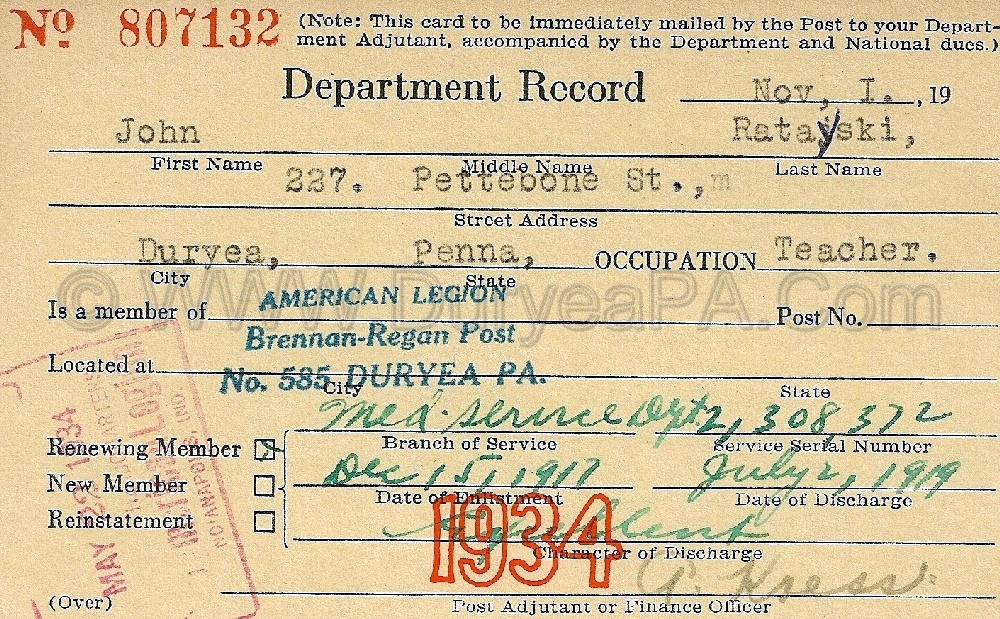 No 807132 (Note: This card to be immediately mailed by the Post to your Depart-
ment Adjutant, accompanied by the Department and National dues.)
Department Record Nov, I. , 19
John Ratajski,
First Name Middle Name Last Name
227. Pettebone St.,m
Street Address
Duryea, Penna, OCCUPATION Teacher.
City State
© WWW.DuryeaPA.Com
Is a member of AMERICAN LEGION Post No.
Brennan-Regan Post
Located at No. 585 DURYEA PA.
City State
Med. Service Dept 2,308,372
Renewing Member Branch of Service Service Serial Number
New Member Dec 15, 1917 July 2, 1919
Date of Enlistment Date of Discharge
Reinstatement Excellent
1934
Character of Discharge
MAY 29 1934
INDIANAPOLIS, IND
Kress.
(Over) Post Adjutant or Finance Officer